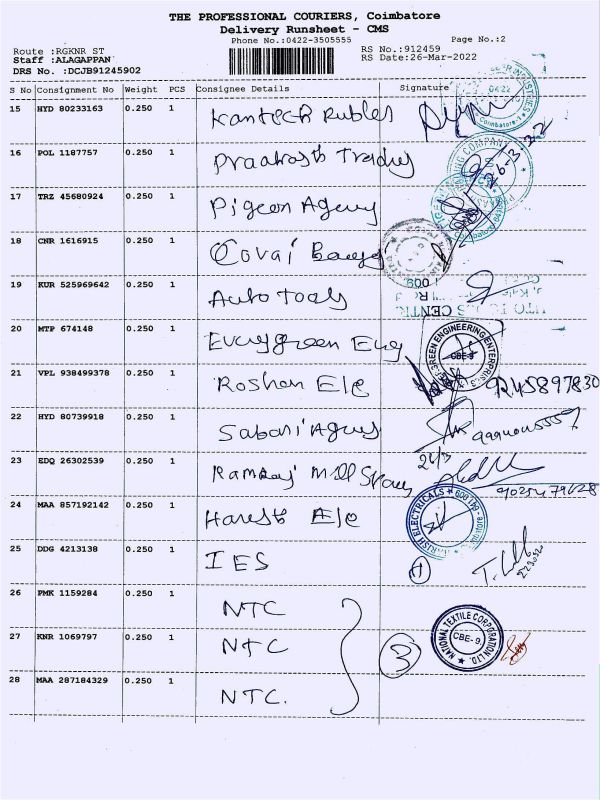 THE PROFESSIONAL COURIERS, Coimbatore
Delivery Runsheet - CMS
Phone No.:0422-3505555 Page No.:2
Route :RGKNR ST RS No.:912459
Staff :ALAGAPPAN RS Date:26-Mar-2022
DRS No. :DCJB91245902
S No Consignment No Weight PCS Consignee Details Signature
15 HYD 80233163 0.250 1 Kantech Rubles
16 POL 1187757 0.250 1 Praakash Tradus
17 TRZ 45680924 0.250 1 Pigeon Agency
18 CNR 1616915 0.250 1 Covai
19 KUR 525969642 0.250 1 Auto tools
20 MTP 674148 0.250 1 Evergreen Eng
21 VPL 938499378 0.250 1 Roshan Ele 9245897830
22 HYD 80739918 0.250 1 Sabari Agency
23 EDQ 26302539 0.250 1 Mill
24 MAA 857192142 0.250 1 Ele
25 DDG 4213138 0.250 1 IES 1
26 PMK 1159284 0.250 1 NTC
27 KNR 1069797 0.250 1 NTC 3
28 MAA 287184329 0.250 1 NTC.
0422
Coimbatore
26-3-22
GREEN ENGINEERING ENTERPRISES
CBE-9
ELECTRICALS
NATIONAL TEXTILE CORPORATION LTD.
CBE-9.